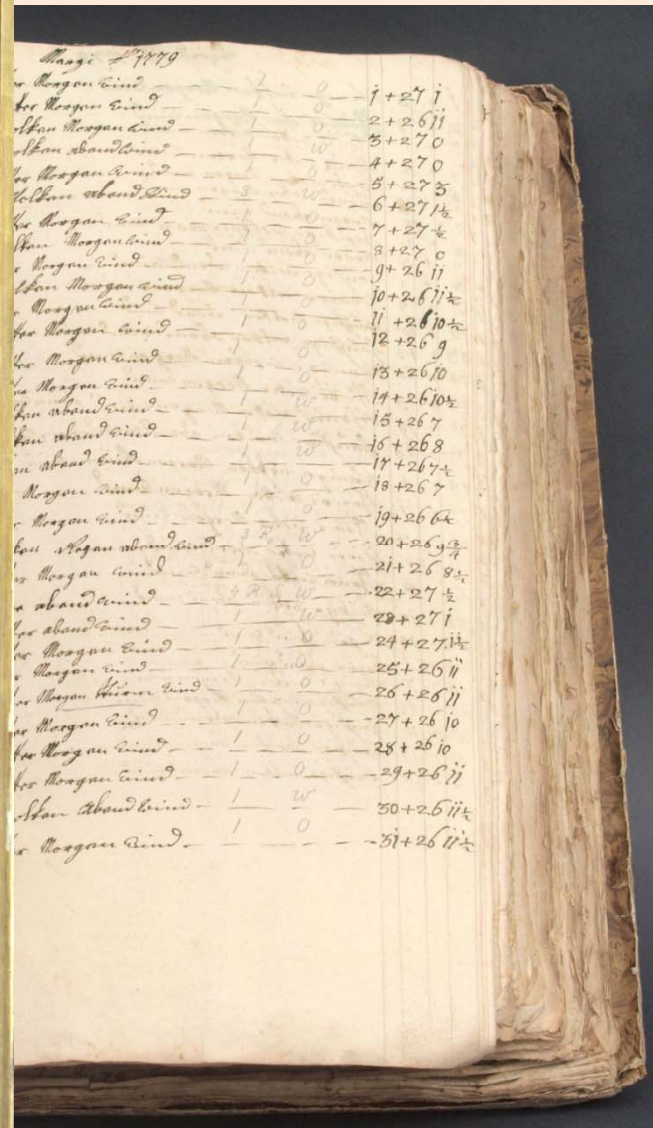 Margi 1779
Morgen wind — 1 0 — 1+27 1
ter Morgen wind — 1 0 — 2+26 11
olken Morgen wind — 1 0 — 3+27 0
olken abend wind — 1 W — 4+27 0
ter Morgen wind — 1 0 — 5+27 3
Wolken abend wind — 3 W — 6+27 1½
ter Morgen wind — 1 0 — 7+27 ½
lken Morgen wind — 0 — 8+27 0
r Morgen wind — 1 0 — 9+26 11
lken Morgen wind — 1 0 — 10+26 11½
r Morgen wind — 1 0 — 11+26 10½
ter Morgen wind — 1 0 — 12+26 9
ter Morgen wind — 1 0 — 13+26 10
Morgen wind — 1 0 — 14+26 10½
lken abend wind — 1 W — 15+26 7
ken abend wind — 1 W — 16+26 8
en abend wind — 1 W — 17+26 7½
Morgen wind — 1 0 — 18+26 7
r Morgen wind — 1 0 — 19+26 6½
ken Regen abend wind — 3 R W — 20+26 9¾
ter Morgen wind — 1 0 — 21+26 8½
abend wind — 4 R W — 22+27 ½
ter abend wind — 1 W — 23+27 1
ter Morgen wind — 1 0 — 24+27 1½
r Morgen wind — 1 0 — 25+26 11
er Morgen Sturm wind — 1 0 — 26+26 11
er Morgen wind — 1 0 — 27+26 10
ter Morgen wind — 1 0 — 28+26 10
ter Morgen wind — 1 0 — 29+26 11
olken Abend wind — 1 W — 30+26 11½
r Morgen wind — 1 0 — 31+26 11½